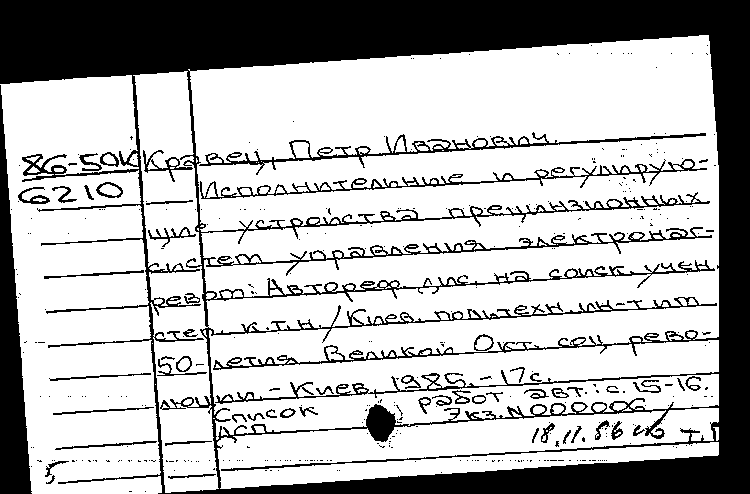 86-50К Кравец, Петр Иванович.
6210 Исполнительные и регулирую-
щие устройства прецизионных
систем управления электронаг-
ревом: Автореф. дис. на соиск. учен.
степ. к.т.н. / Киев. политехн. ин-т им.
50-летия Великой Окт. соц. рево-
люции. - Киев, 1986. - 17 с.
Список работ авт.: с. 15-16.
ДСП. Экз. N 000006
18.11.86
5